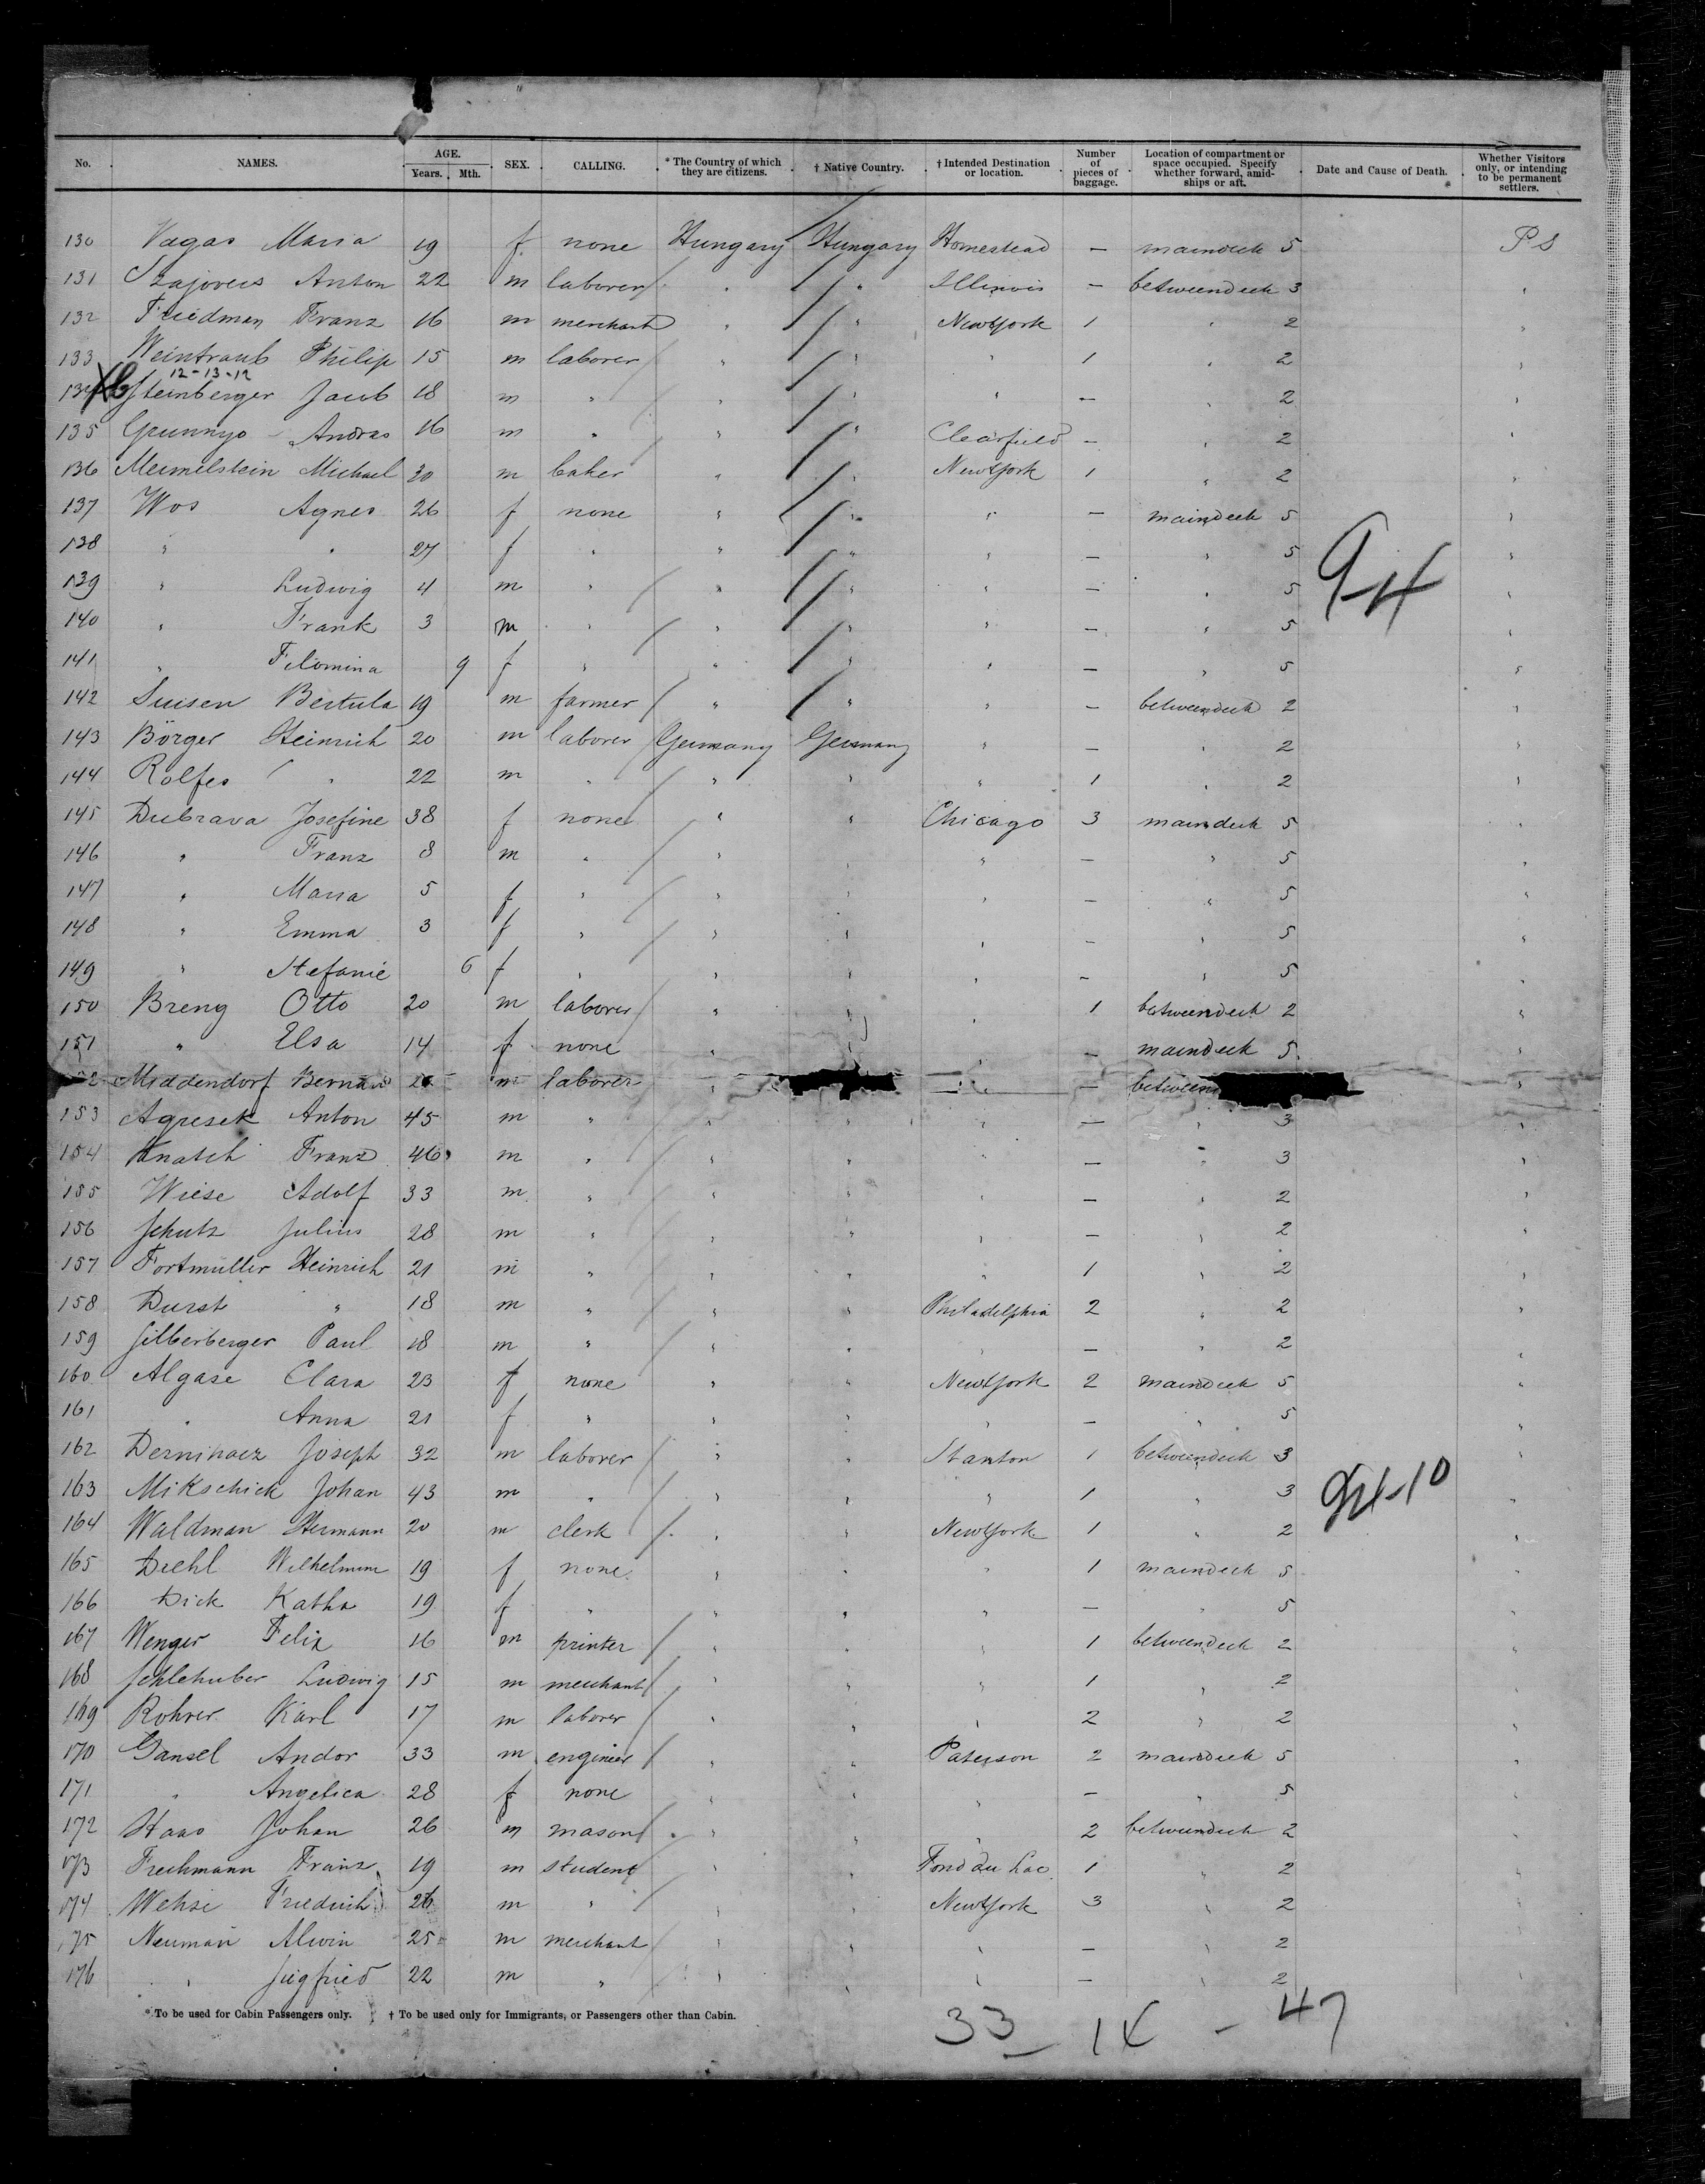 No. NAMES. AGE. Years. Mth. SEX. CALLING. * The Country of which they are citizens. † Native Country. † Intended Destination or location. Number of pieces of baggage. Location of compartment or space occupied. Specify whether forward, amidships or aft. Date and Cause of Death. Whether Visitors only, or intending to be permanent settlers.
130 Vagas Maria 19 f. none Hungary Hungary Homestead — maindeck 5 PS
131 Szajovics Anton 22 m laborer " " Illinois — betweendeck 3 "
132 Friedman Franz 16 m merchant " " NewYork 1 " 2 "
133 Weintraub Philip 15 m laborer " " " 1 " 2 "
12-13-12
134 Steinberger Jacob 18 m " " " " — " 2 "
135 Andras 16 m " " " Clearfield — " 2 "
136 Meimelstein Michael 30 m baker " " NewYork 1 " 2 "
137 Wos Agnes 26 f none " " " — maindeck 5 "
138 " " 27 f " " " " — " 5 "
94
139 " Ludwig 4 m " " " " — " 5 "
140 " Frank 3 m " " " " — " 5 "
141 " Filomina 9 f " " " " — " 5 "
142 Suisen Bertula 19 m farmer " " " — betweendeck 2 "
143 Börger Heinrich 20 m laborer Germany Germany " — " 2 "
144 Rolfes " 22 m " " " " 1 " 2 "
145 Dubrava Josefine 38 f none " " Chicago 3 maindeck 5 "
146 " Franz 8 m " " " " — " 5 "
147 " Maria 5 f " " " " — " 5 "
148 " Emma 3 f " " " " — " 5 "
149 " Stefanie 6 f " " " " — " 5 "
150 Breng Otto 20 m laborer " " " 1 betweendeck 2 "
151 " Elsa 14 f none " " " — maindeck 5 "
2 Middendorf Bernard m laborer " " — between "
153 Agresek Anton 45 m " " " " — " 3 "
154 Knatsch Franz 46 m " " " " — " 3 "
155 Wiese Adolf 33 m " " " " — " 2 "
156 Schutz Julius 28 m " " " " — " 2 "
157 Fortmuller Heinrich 21 m " " " " 1 " 2 "
158 Durst " 18 m " " " Philadelphia 2 " 2 "
159 Silberberger Paul 18 m " " " " — " 2 "
160 Algase Clara 23 f none " " NewYork 2 maindeck 5 "
161 " Anna 21 f " " " " — " 5 "
162 Derninacz Joseph 32 m laborer " " Stanton 1 betweendeck 3 "
163 Mikschick Johan 43 m " " " " 1 " 3 "
164 Waldman Hermann 20 m clerk " " NewYork 1 " 2 "
165 Diehl Wilhelmine 19 f none " " " 1 maindeck 5 "
166 Dick Katha 19 f " " " " — " 5 "
167 Wenger Felix 16 m printer " " " 1 betweendeck 2 "
168 Schlehuber Ludwig 15 m merchant " " " 1 " 2 "
169 Rohrer Karl 17 m laborer " " " 2 " 2 "
170 Gansel Andor 33 m engineer " " Paterson 2 maindeck 5 "
171 " Angelica 28 f none " " " — " 5 "
172 Haas Johan 26 m mason " " " 2 betweendeck 2 "
173 Frechmann Franz 19 m student " " Fond du Lac 1 " 2 "
174 Wehse Friedrich 26 m " " " NewYork 3 " 2 "
175 Neuman Alwin 25 m merchant " " " — " 2 "
176 " Siegfried 22 m " " " " — " 2 "
* To be used for Cabin Passengers only. † To be used only for Immigrants, or Passengers other than Cabin.
33 — 14 — 47